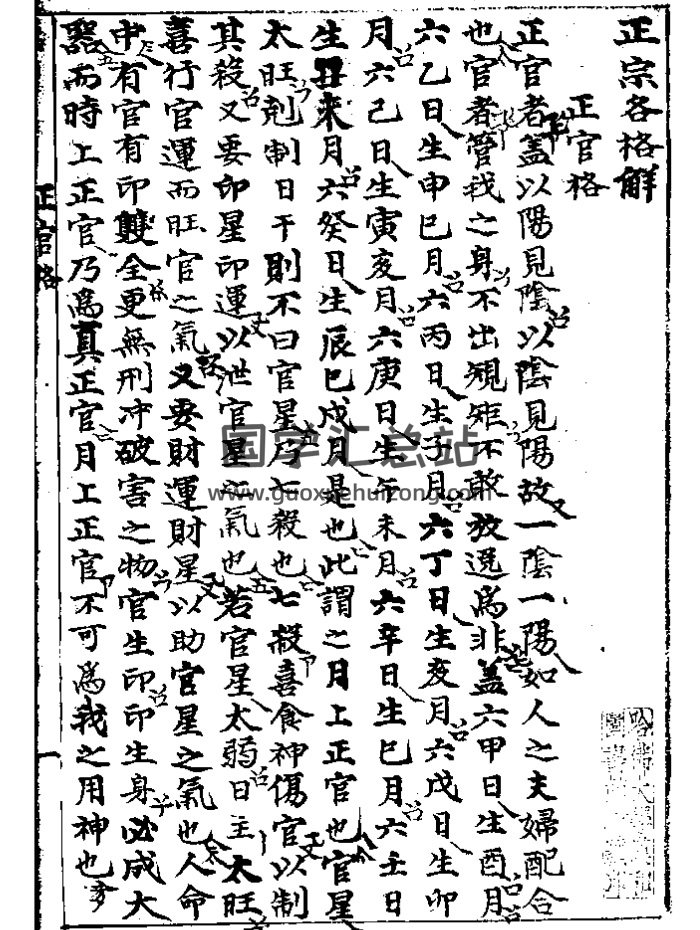 正宗各格解
正官格
正官者盖以陽見陰以陰見陽故一陰一陽如人之夫婦配合
也官者管我之身不出䂓矩不敢放逸爲非盖六甲日生酉月
六乙日生申巳月六丙日生子月六丁日生亥月六戊日生卯
月六己日生寅亥月六庚日生午未月六辛日生巳月六壬日
生丑未月六癸日生辰巳戌月是也此謂之月上正官也官星
太旺剋制日干則不曰官星乃七殺也七殺喜食神傷官以制
其殺又要印星印運以泄官星之氣也若官星太弱日主太旺
喜行官運而旺官之氣又要財運財星以助官星之氣也人命
中有官有印雙全更無刑冲破害之物官生印印生身必成大
器而時上正官乃爲真正官月上正官不可爲我之用神也
正官格
一
国学汇总站
www.guoxuehuizong.com